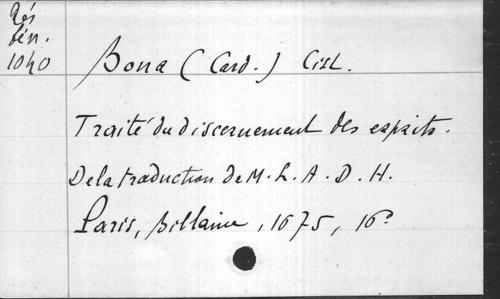 Rés
bén.
1040
Bona (Card.) Cist.
Traité du discernement des esprits.
De la traduction de M. L. A. D. H.
Paris, Billaine, 1675, 16º